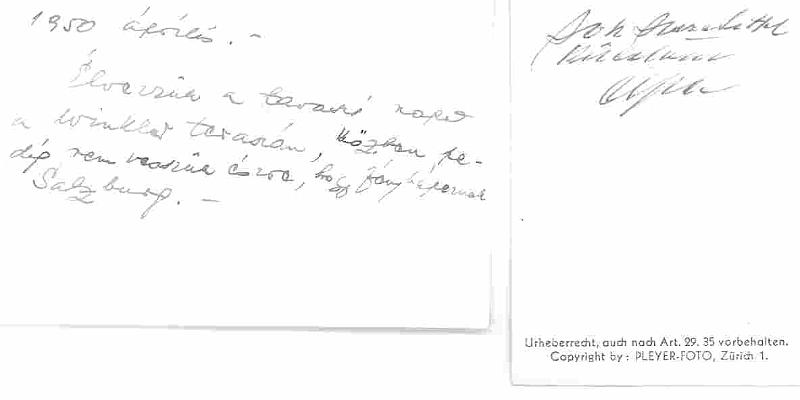 1950 április. –
Élvezzük a tavaszi napot
a Winkler teraszán, közben pe-
dig nem vesszük észre, hogy fényképeznek
Salzburg. –
Sok szeretettel
Urheberrecht, auch nach Art. 29. 35 vorbehalten.
Copyright by: PLEYER-FOTO, Zürich 1.